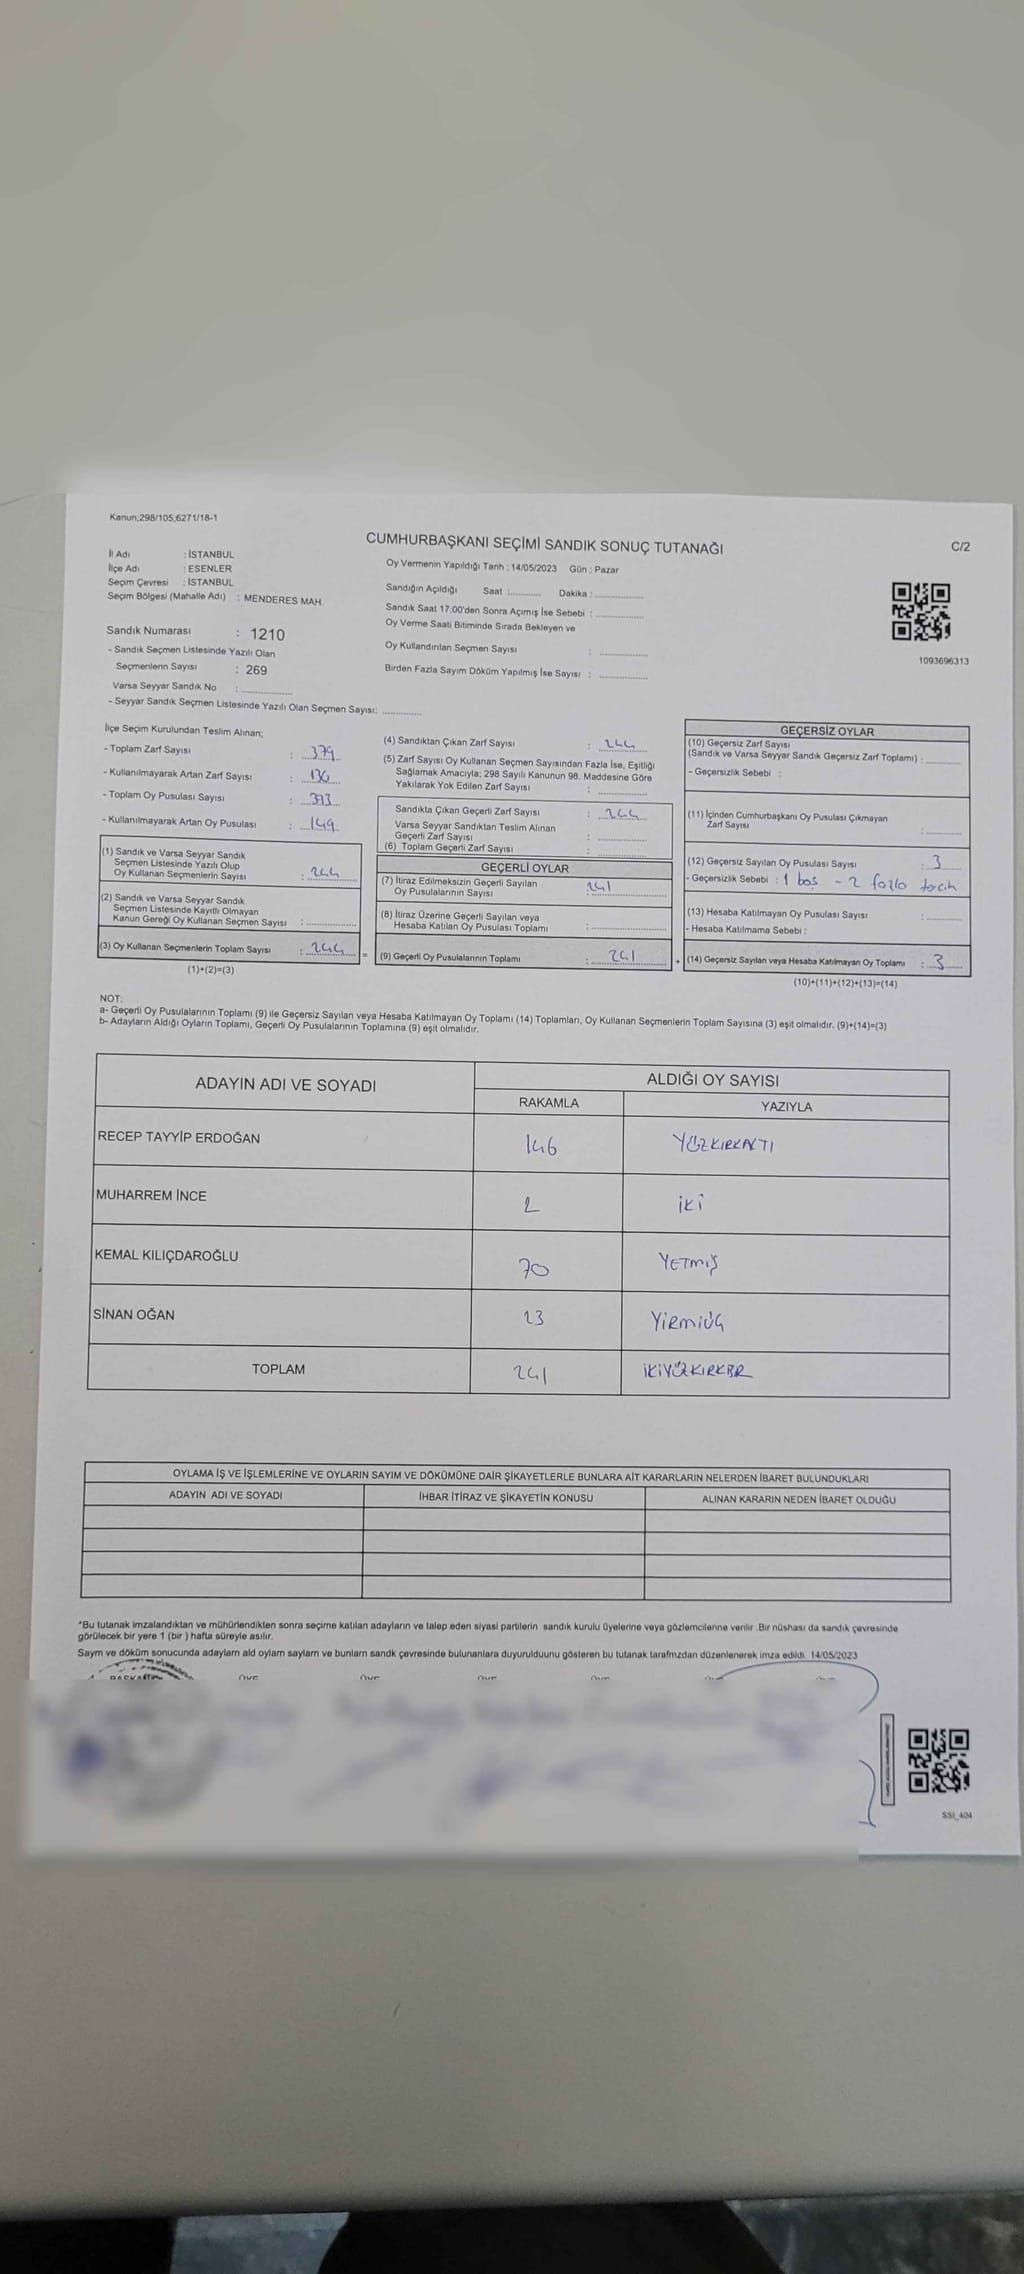 Kanun;298/105;6271/18-1
CUMHURBAŞKANI SEÇİMİ SANDIK SONUÇ TUTANAĞI
C/2
İl Adı : İSTANBUL
İlçe Adı : ESENLER
Seçim Çevresi : İSTANBUL
Seçim Bölgesi (Mahalle Adı) : MENDERES MAH.
Sandık Numarası : 1210
- Sandık Seçmen Listesinde Yazılı Olan
Seçmenlerin Sayısı : 269
Varsa Seyyar Sandık No :
- Seyyar Sandık Seçmen Listesinde Yazılı Olan Seçmen Sayısı:
Oy Vermenin Yapıldığı Tarih : 14/05/2023 Gün : Pazar
Sandığın Açıldığı Saat : Dakika :
Sandık Saat 17:00'den Sonra Açımış İse Sebebi :
Oy Verme Saati Bitiminde Sırada Bekleyen ve
Oy Kullandırılan Seçmen Sayısı :
Birden Fazla Sayım Döküm Yapılmış İse Sayısı :
1093696313
İlçe Seçim Kurulundan Teslim Alınan;
- Toplam Zarf Sayısı : 379
- Kullanılmayarak Artan Zarf Sayısı : 136
- Toplam Oy Pusulası Sayısı : 393
- Kullanılmayarak Artan Oy Pusulası : 149
(1) Sandık ve Varsa Seyyar Sandık
Seçmen Listesinde Yazılı Olup
Oy Kullanan Seçmenlerin Sayısı : 244
(2) Sandık ve Varsa Seyyar Sandık
Seçmen Listesinde Kayıtlı Olmayan
Kanun Gereği Oy Kullanan Seçmen Sayısı :
(3) Oy Kullanan Seçmenlerin Toplam Sayısı : 244
(1)+(2)=(3)
(4) Sandıktan Çıkan Zarf Sayısı : 244
(5) Zarf Sayısı Oy Kullanan Seçmen Sayısından Fazla İse, Eşitliği
Sağlamak Amacıyla; 298 Sayılı Kanunun 98. Maddesine Göre
Yakılarak Yok Edilen Zarf Sayısı :
Sandıkta Çıkan Geçerli Zarf Sayısı : 244
Varsa Seyyar Sandıktan Teslim Alınan
Geçerli Zarf Sayısı :
(6) Toplam Geçerli Zarf Sayısı :
GEÇERLİ OYLAR
(7) İtiraz Edilmeksizin Geçerli Sayılan
Oy Pusulalarının Sayısı 241
(8) İtiraz Üzerine Geçerli Sayılan veya
Hesaba Katılan Oy Pusulası Toplamı :
= (9) Geçerli Oy Pusulalarının Toplamı : 241
GEÇERSİZ OYLAR
(10) Geçersiz Zarf Sayısı
(Sandık ve Varsa Seyyar Sandık Geçersiz Zarf Toplamı) :
- Geçersizlik Sebebi :
(11) İçinden Cumhurbaşkanı Oy Pusulası Çıkmayan
Zarf Sayısı :
(12) Geçersiz Sayılan Oy Pusulası Sayısı : 3
- Geçersizlik Sebebi : 1 boş - 2 fazla tercih
(13) Hesaba Katılmayan Oy Pusulası Sayısı :
- Hesaba Katılmama Sebebi :
+ (14) Geçersiz Sayılan veya Hesaba Katılmayan Oy Toplamı : 3
(10)+(11)+(12)+(13)=(14)
NOT:
a- Geçerli Oy Pusulalarının Toplamı (9) ile Geçersiz Sayılan veya Hesaba Katılmayan Oy Toplamı (14) Toplamları, Oy Kullanan Seçmenlerin Toplam Sayısına (3) eşit olmalıdır. (9)+(14)=(3)
b- Adayların Aldığı Oyların Toplamı, Geçerli Oy Pusulalarının Toplamına (9) eşit olmalıdır.
ADAYIN ADI VE SOYADI
ALDIĞI OY SAYISI
RAKAMLA YAZIYLA
RECEP TAYYİP ERDOĞAN 146 YÜZKIRKALTI
MUHARREM İNCE 2 İKİ
KEMAL KILIÇDAROĞLU 70 YETMİŞ
SİNAN OĞAN 23 YİRMİÜÇ
TOPLAM 241 İKİYÜZKIRKBİR
OYLAMA İŞ VE İŞLEMLERİNE VE OYLARIN SAYIM VE DÖKÜMÜNE DAİR ŞİKAYETLERLE BUNLARA AİT KARARLARIN NELERDEN İBARET BULUNDUKLARI
ADAYIN ADI VE SOYADI İHBAR İTİRAZ VE ŞİKAYETİN KONUSU ALINAN KARARIN NEDEN İBARET OLDUĞU
*Bu tutanak imzalandıktan ve mühürlendikten sonra seçime katılan adayların ve talep eden siyasi partilerin sandık kurulu üyelerine veya gözlemcilerine verilir. Bir nüshası da sandık çevresinde
görülecek bir yere 1 (bir ) hafta süreyle asılır.
Sayım ve döküm sonucunda adayların ald oyların sayların ve bunların sandk çevresinde bulunanlara duyurulduunu gösteren bu tutanak tarafmzdan düzenlenerek imza edildi. 14/05/2023
SSI_404